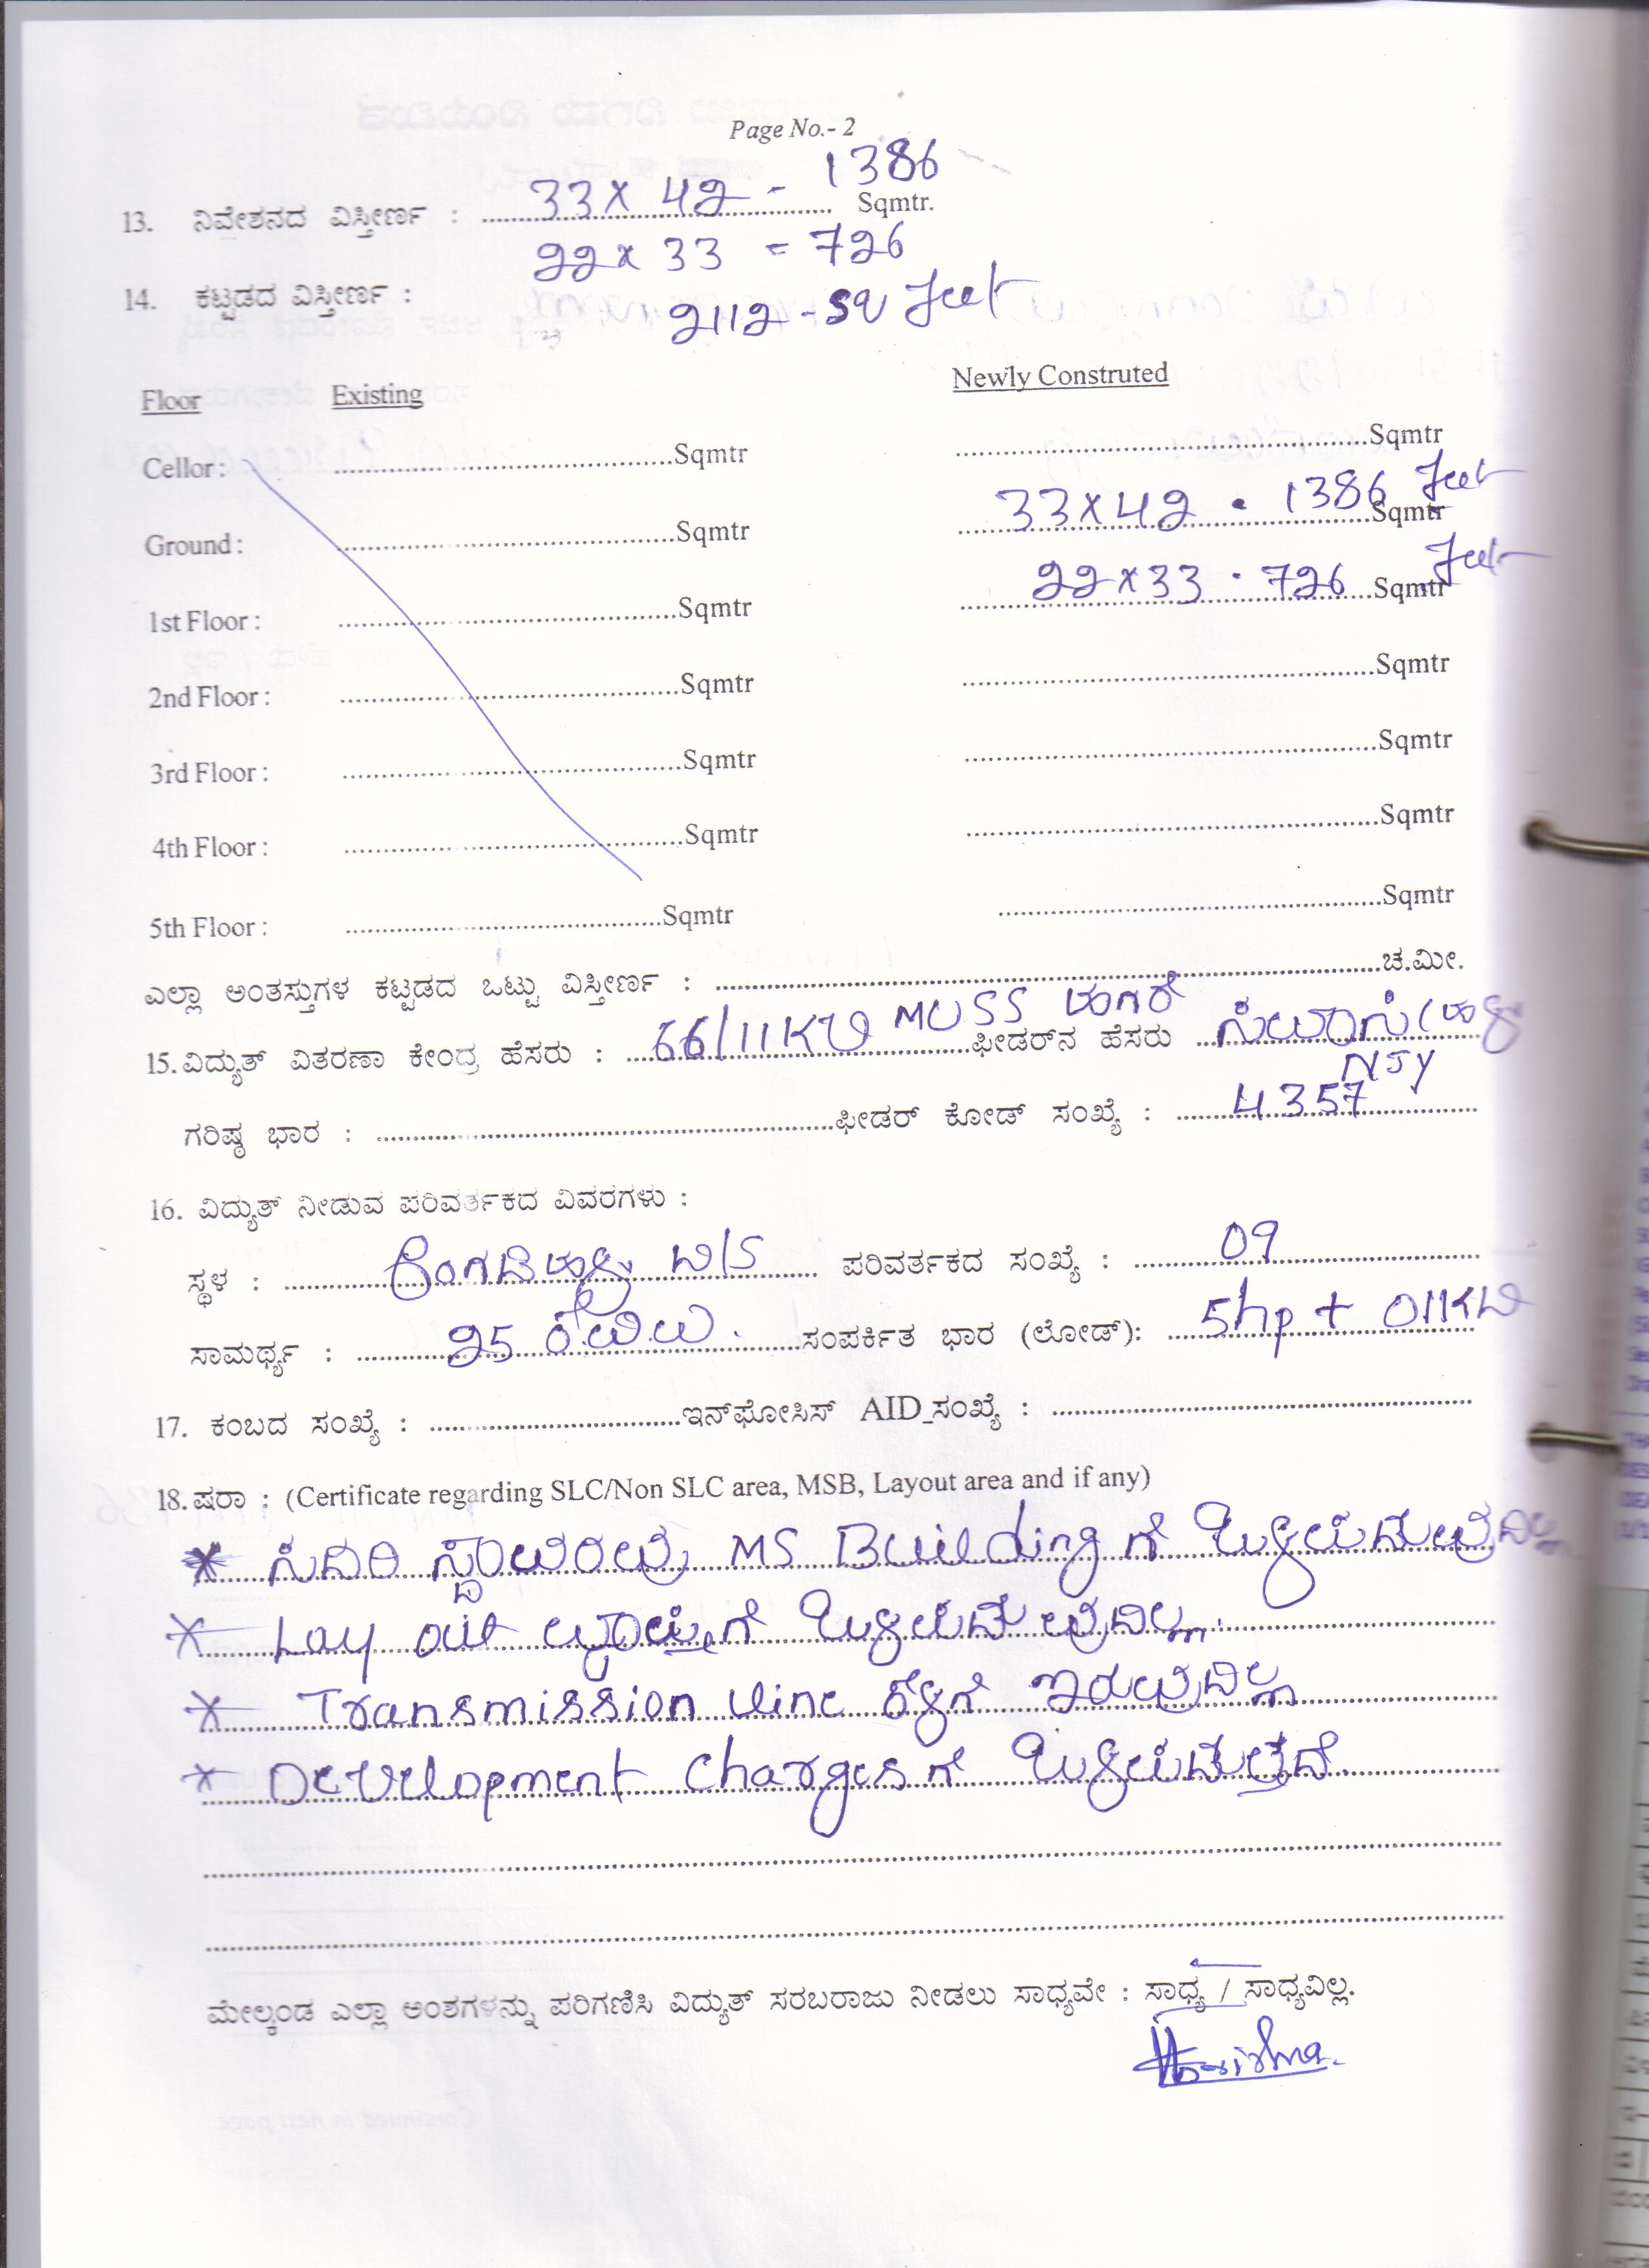 Page No.- 2
13. ನಿವೇಶನದ ವಿಸ್ತೀರ್ಣ : 33 x 42 - 1386 Sqmtr.
22 x 33 = 726
14. ಕಟ್ಟಡದ ವಿಸ್ತೀರ್ಣ :
2112 - Sq feet
Floor Existing Newly Construted
Cellor : ....Sqmtr ....Sqmtr
Ground : ....Sqmtr 33 x 42 • 1386 feet Sqmtr
1st Floor : ....Sqmtr 22 x 33 • 726 feet Sqmtr
2nd Floor : ....Sqmtr ....Sqmtr
3rd Floor : ....Sqmtr ....Sqmtr
4th Floor : ....Sqmtr ....Sqmtr
5th Floor : ....Sqmtr ....Sqmtr
ಎಲ್ಲಾ ಅಂತಸ್ತುಗಳ ಕಟ್ಟಡದ ಒಟ್ಟು ವಿಸ್ತೀರ್ಣ : ....ಚ.ಮೀ.
15. ವಿದ್ಯುತ್ ವಿತರಣಾ ಕೇಂದ್ರ ಹೆಸರು : 66/11KV MUSS ಹಗರೆ ಫೀಡರ್‌ನ ಹೆಸರು
NJY
ಗರಿಷ್ಠ ಭಾರ : ....ಫೀಡರ್ ಕೋಡ್ ಸಂಖ್ಯೆ : 4357
16. ವಿದ್ಯುತ್ ನೀಡುವ ಪರಿವರ್ತಕದ ವಿವರಗಳು :
ಸ್ಥಳ : W/S ಪರಿವರ್ತಕದ ಸಂಖ್ಯೆ : 09
ಸಾಮರ್ಥ್ಯ : 25 ಕೆ.ವಿ.ಎ. ಸಂಪರ್ಕಿತ ಭಾರ (ಲೋಡ್): 5hp + 011KW
17. ಕಂಬದ ಸಂಖ್ಯೆ : ....ಇನ್‌ಫೋಸಿಸ್ AID_ಸಂಖ್ಯೆ : ....
18. ಷರಾ : (Certificate regarding SLC/Non SLC area, MSB, Layout area and if any)
* ಸದರಿ ಸ್ಥಾವರವು MS Building ಗೆ ಒಳಪಡುವುದಿಲ್ಲ
* Lay out ವ್ಯಾಪ್ತಿಗೆ ಒಳಪಡುವುದಿಲ್ಲ.
* Transmission line ಕೆಳಗೆ ಇರುವುದಿಲ್ಲ
* Development charges ಗೆ ಒಳಪಡುತ್ತದೆ.
ಮೇಲ್ಕಂಡ ಎಲ್ಲಾ ಅಂಶಗಳನ್ನು ಪರಿಗಣಿಸಿ ವಿದ್ಯುತ್ ಸರಬರಾಜು ನೀಡಲು ಸಾಧ್ಯವೇ : ಸಾಧ್ಯ / ಸಾಧ್ಯವಿಲ್ಲ.